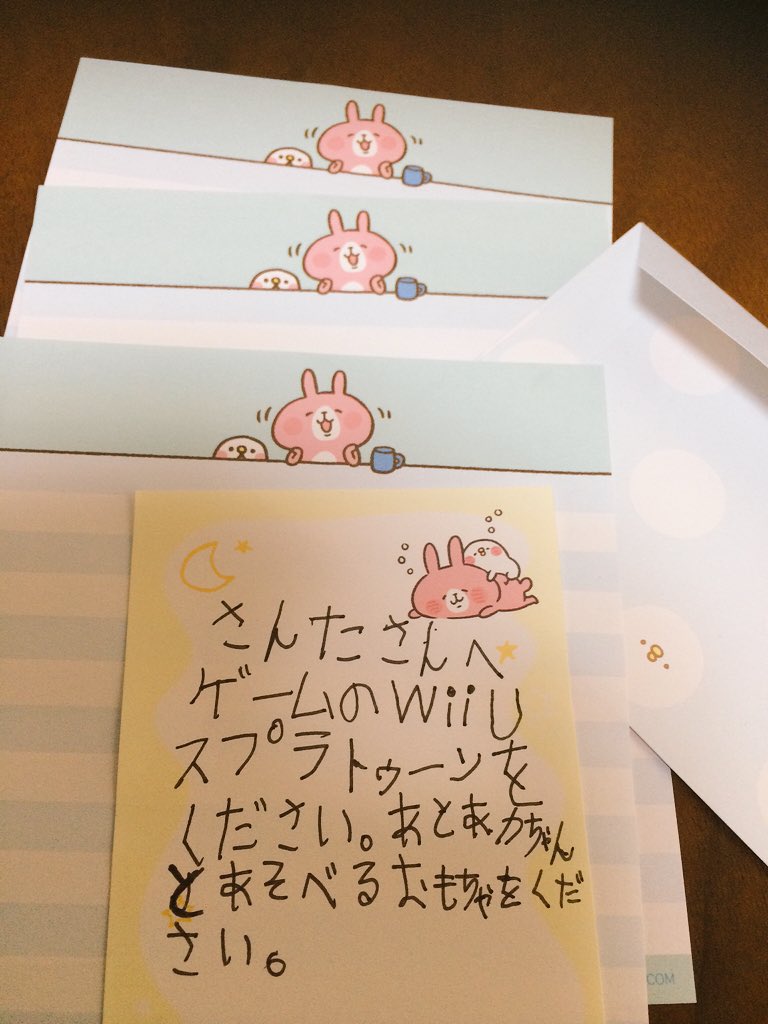 さんたさんへ
ゲームのWiiU
スプラトゥーンを
ください。あとあカちゃん
とあそべるおもちゃをくだ
さい。
COM